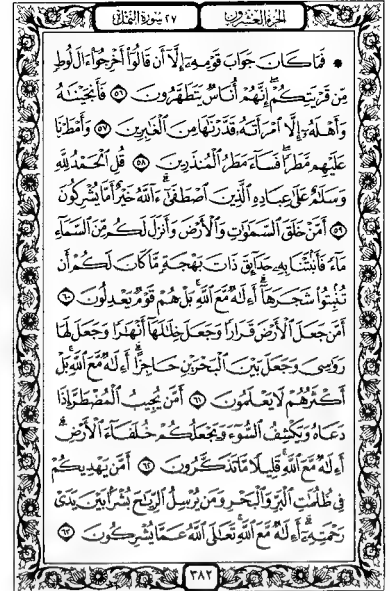 الجزء العشرون ٢٧ سورة النمل
۞ فَمَا كَانَ جَوَابَ قَوْمِهِۦٓ إِلَّآ أَن قَالُوٓا۟ أَخْرِجُوٓا۟ ءَالَ لُوطٍ
مِّن قَرْيَتِكُمْ ۖ إِنَّهُمْ أُنَاسٌ يَتَطَهَّرُونَ ٥٦ فَأَنجَيْنَٰهُ
وَأَهْلَهُۥٓ إِلَّا ٱمْرَأَتَهُۥ قَدَّرْنَٰهَا مِنَ ٱلْغَٰبِرِينَ ٥٧ وَأَمْطَرْنَا
عَلَيْهِم مَّطَرًا ۖ فَسَآءَ مَطَرُ ٱلْمُنذَرِينَ ٥٨ قُلِ ٱلْحَمْدُ لِلَّهِ
وَسَلَٰمٌ عَلَىٰ عِبَادِهِ ٱلَّذِينَ ٱصْطَفَىٰٓ ۗ ءَآللَّهُ خَيْرٌ أَمَّا يُشْرِكُونَ
٥٩ أَمَّنْ خَلَقَ ٱلسَّمَٰوَٰتِ وَٱلْأَرْضَ وَأَنزَلَ لَكُم مِّنَ ٱلسَّمَآءِ
مَآءً فَأَنۢبَتْنَا بِهِۦ حَدَآئِقَ ذَاتَ بَهْجَةٍ مَّا كَانَ لَكُمْ أَن
تُنۢبِتُوا۟ شَجَرَهَآ ۗ أَءِلَٰهٌ مَّعَ ٱللَّهِ ۚ بَلْ هُمْ قَوْمٌ يَعْدِلُونَ ٦٠
أَمَّن جَعَلَ ٱلْأَرْضَ قَرَارًا وَجَعَلَ خِلَٰلَهَآ أَنْهَٰرًا وَجَعَلَ لَهَا
رَوَٰسِىَ وَجَعَلَ بَيْنَ ٱلْبَحْرَيْنِ حَاجِزًا ۗ أَءِلَٰهٌ مَّعَ ٱللَّهِ ۚ بَلْ
أَكْثَرُهُمْ لَا يَعْلَمُونَ ٦١ أَمَّن يُجِيبُ ٱلْمُضْطَرَّ إِذَا
دَعَاهُ وَيَكْشِفُ ٱلسُّوٓءَ وَيَجْعَلُكُمْ خُلَفَآءَ ٱلْأَرْضِ ۗ
أَءِلَٰهٌ مَّعَ ٱللَّهِ ۚ قَلِيلًا مَّا تَذَكَّرُونَ ٦٢ أَمَّن يَهْدِيكُمْ
فِى ظُلُمَٰتِ ٱلْبَرِّ وَٱلْبَحْرِ وَمَن يُرْسِلُ ٱلرِّيَٰحَ بُشْرًۢا بَيْنَ يَدَىْ
رَحْمَتِهِۦٓ ۗ أَءِلَٰهٌ مَّعَ ٱللَّهِ ۚ تَعَٰلَى ٱللَّهُ عَمَّا يُشْرِكُونَ ٦٣
٣٨٢